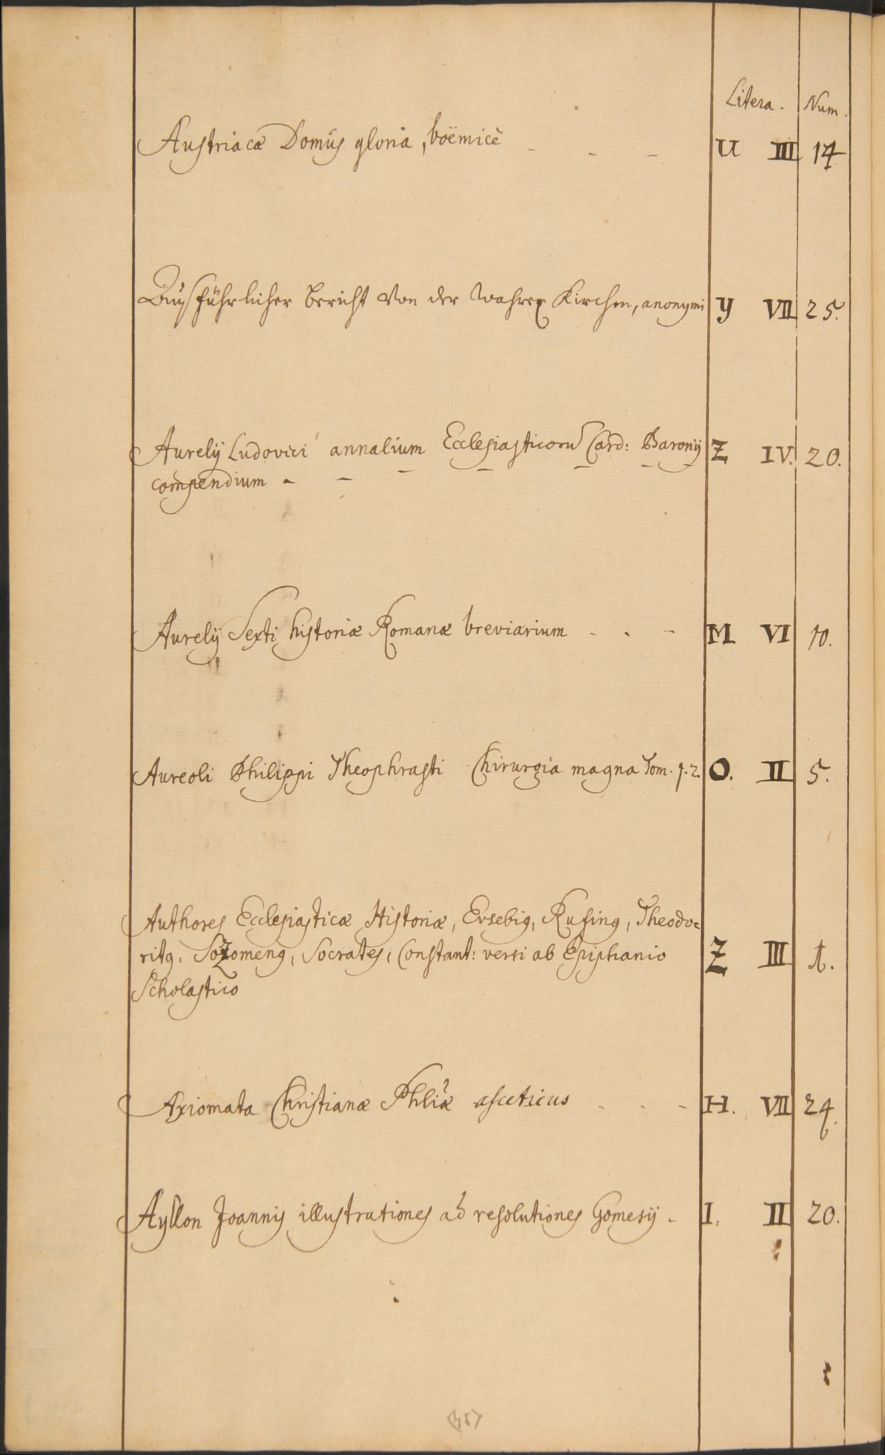 Litera. Num.
Austriacæ Domûs gloria, boëmicè - - - U III 14
Außführlicher Bericht Von der Wahren Kirchen, anonymi Y VII 25.
Aurelÿ Ludovici annalium Ecclesiasticorũ Card: Baronÿ Z IV. 20.
compendium - - - - - -
Aurelÿ Sexti historiæ Romanæ breviarium - - - M VI 10.
Aureoli Philippi Theophrasti Chirurgia magna Tom. 1. 2. O. II 5.
Authores Ecclesiasticæ Historiæ, Eusebiꝰ, Rufinꝰ, Theodo=
ritꝰ, Sozomenꝰ, Socrates, Constant: versi ab Epiphanio Z III 1.
Scholastico
Axiomata Christianæ Phliæ asceticus - - - H. VII 24.
Ayllon Joannis illustrationes ad resolutiones Gomesÿ - I. II 20.